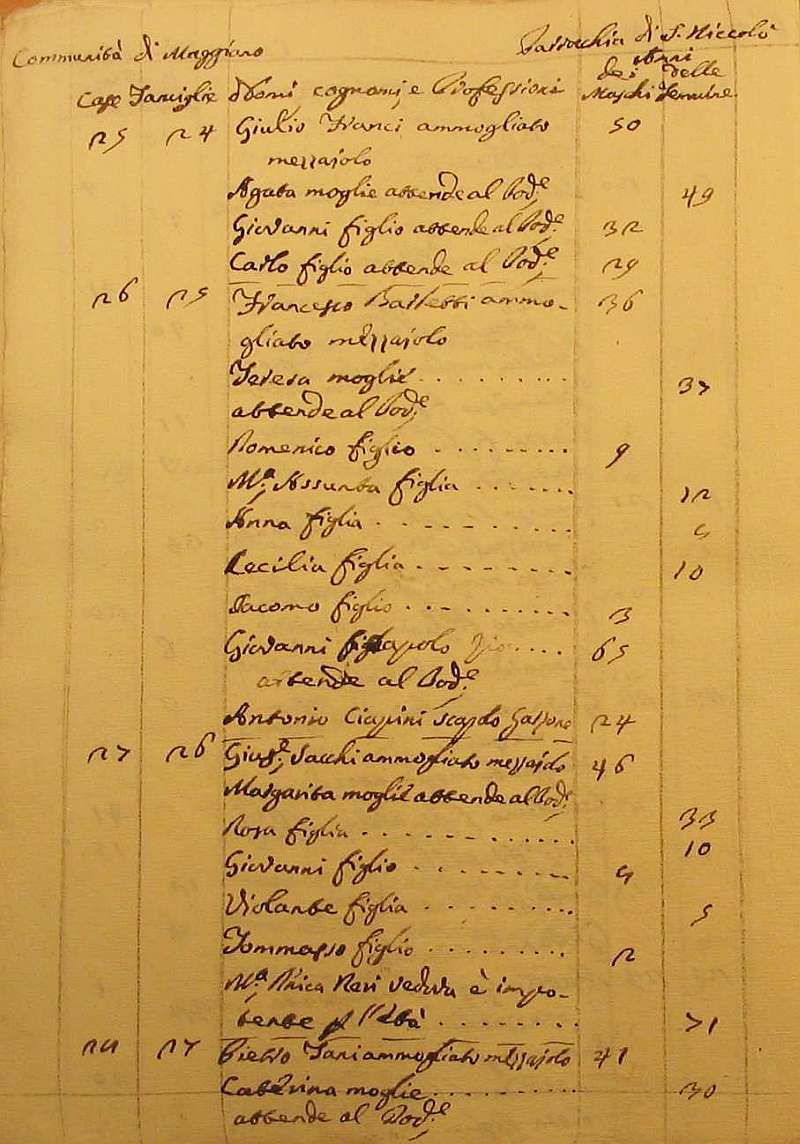 Communità di Maggiano Parrocchia di S. Niccolò
Anni
dei delle
Case Famiglie Nomi, cognomi, e Professioni Maschi Femmine
25 24 Giulio Franci ammogliato 50
mezzajolo
Agata moglie attende al Pod.e 49
Giovanni figlio attende al Pod.e 32
Carlo figlio attende al Pod.e 29
26 25 Francesco ammo- 36
gliato mezzajolo
Teresa moglie 37
attende al Pod.e
Domenico figlio 9
M.a Assunta figlia 12
Anna figlia
Cecilia figlia 10
Jacomo figlio 3
Giovanni 65
attende al Pod.e
Antonio Ciapini scapolo Garzone 24
27 26 Gius.e Sacchi ammogliato mezzajolo 46
Margarita moglie attende al Pod.e
33
Rosa figlia 10
Giovanni figlio
Violante figlia 5
Tommasso figlio 2
M.a Neri vedova è impo-
tente p l'età 71
27 Pietro ammogliato mezzajolo 41
Caterina moglie 30
attende al Pod.e